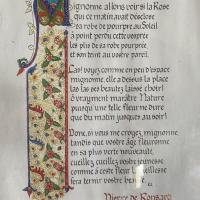 Mignonne allons voir si la Rose
qui ce matin avait déclose
sa robe de pourpre au Soleil
a point perdu cette vesprée
les plis de sa robe pourprée
et son teint au vostre pareil.
Las! voyez comme en peu d'espace
mignonne, elle a dessus la place
las las ses beautez laissé choir!
ô vrayment marâtre Nature
puisqu'une telle fleur ne dure
que du matin jusques au soir!
Donc, si vous me croyez mignonne,
tandis que vostre âge fleuronne
en sa plus verte nouveauté,
cueillez cueillez vostre jeunesse
comme à ceste fleur la vieillesse
fera ternir vostre beauté.
Pierre de Ronsard